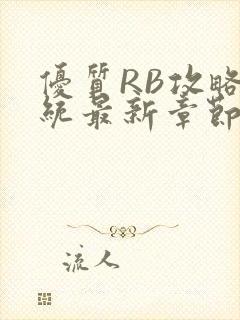 優質RB攻略
統最新章節
流人